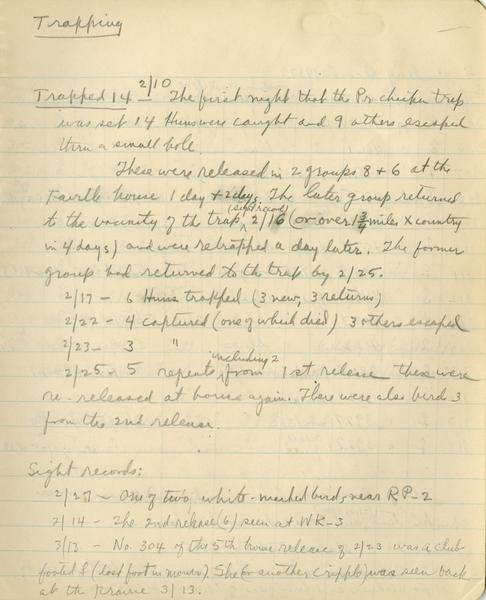 Trapping
Trapped 14 2/10 The first night that the Pr chicken trap
was set 14 Huns were caught and 9 others escaped
thru a small hole.
These were released in 2 groups 8 + 6 at the
house 1 day + 2 days. The later group returned
to the vacinity of the trap 2/16 (or over 1 3/4 miles x country
in 4 days) and were retrapped a day later. The former
group had returned to the trap by 2/25.
2/17 - 6 Huns trapped (3 new, 3 returns)
2/22 - 4 captured (one of which died) 3 others escaped
2/23 - 3 "
2/25 - 5 repeats, including 2 from 1st release these were
re-released at house again. There were also birds 3
from the 2nd release.
Sight records:
2/27 - One of two white-marked birds near RP-2
2/14 - The 2nd release (6) seen at WR-3
3/13 - No. 304 of the 5th house release of 2/23 was a club
footed ♀ (lost foot in mouse). She (or another cripple) was seen back
at the Prairie 3/13.